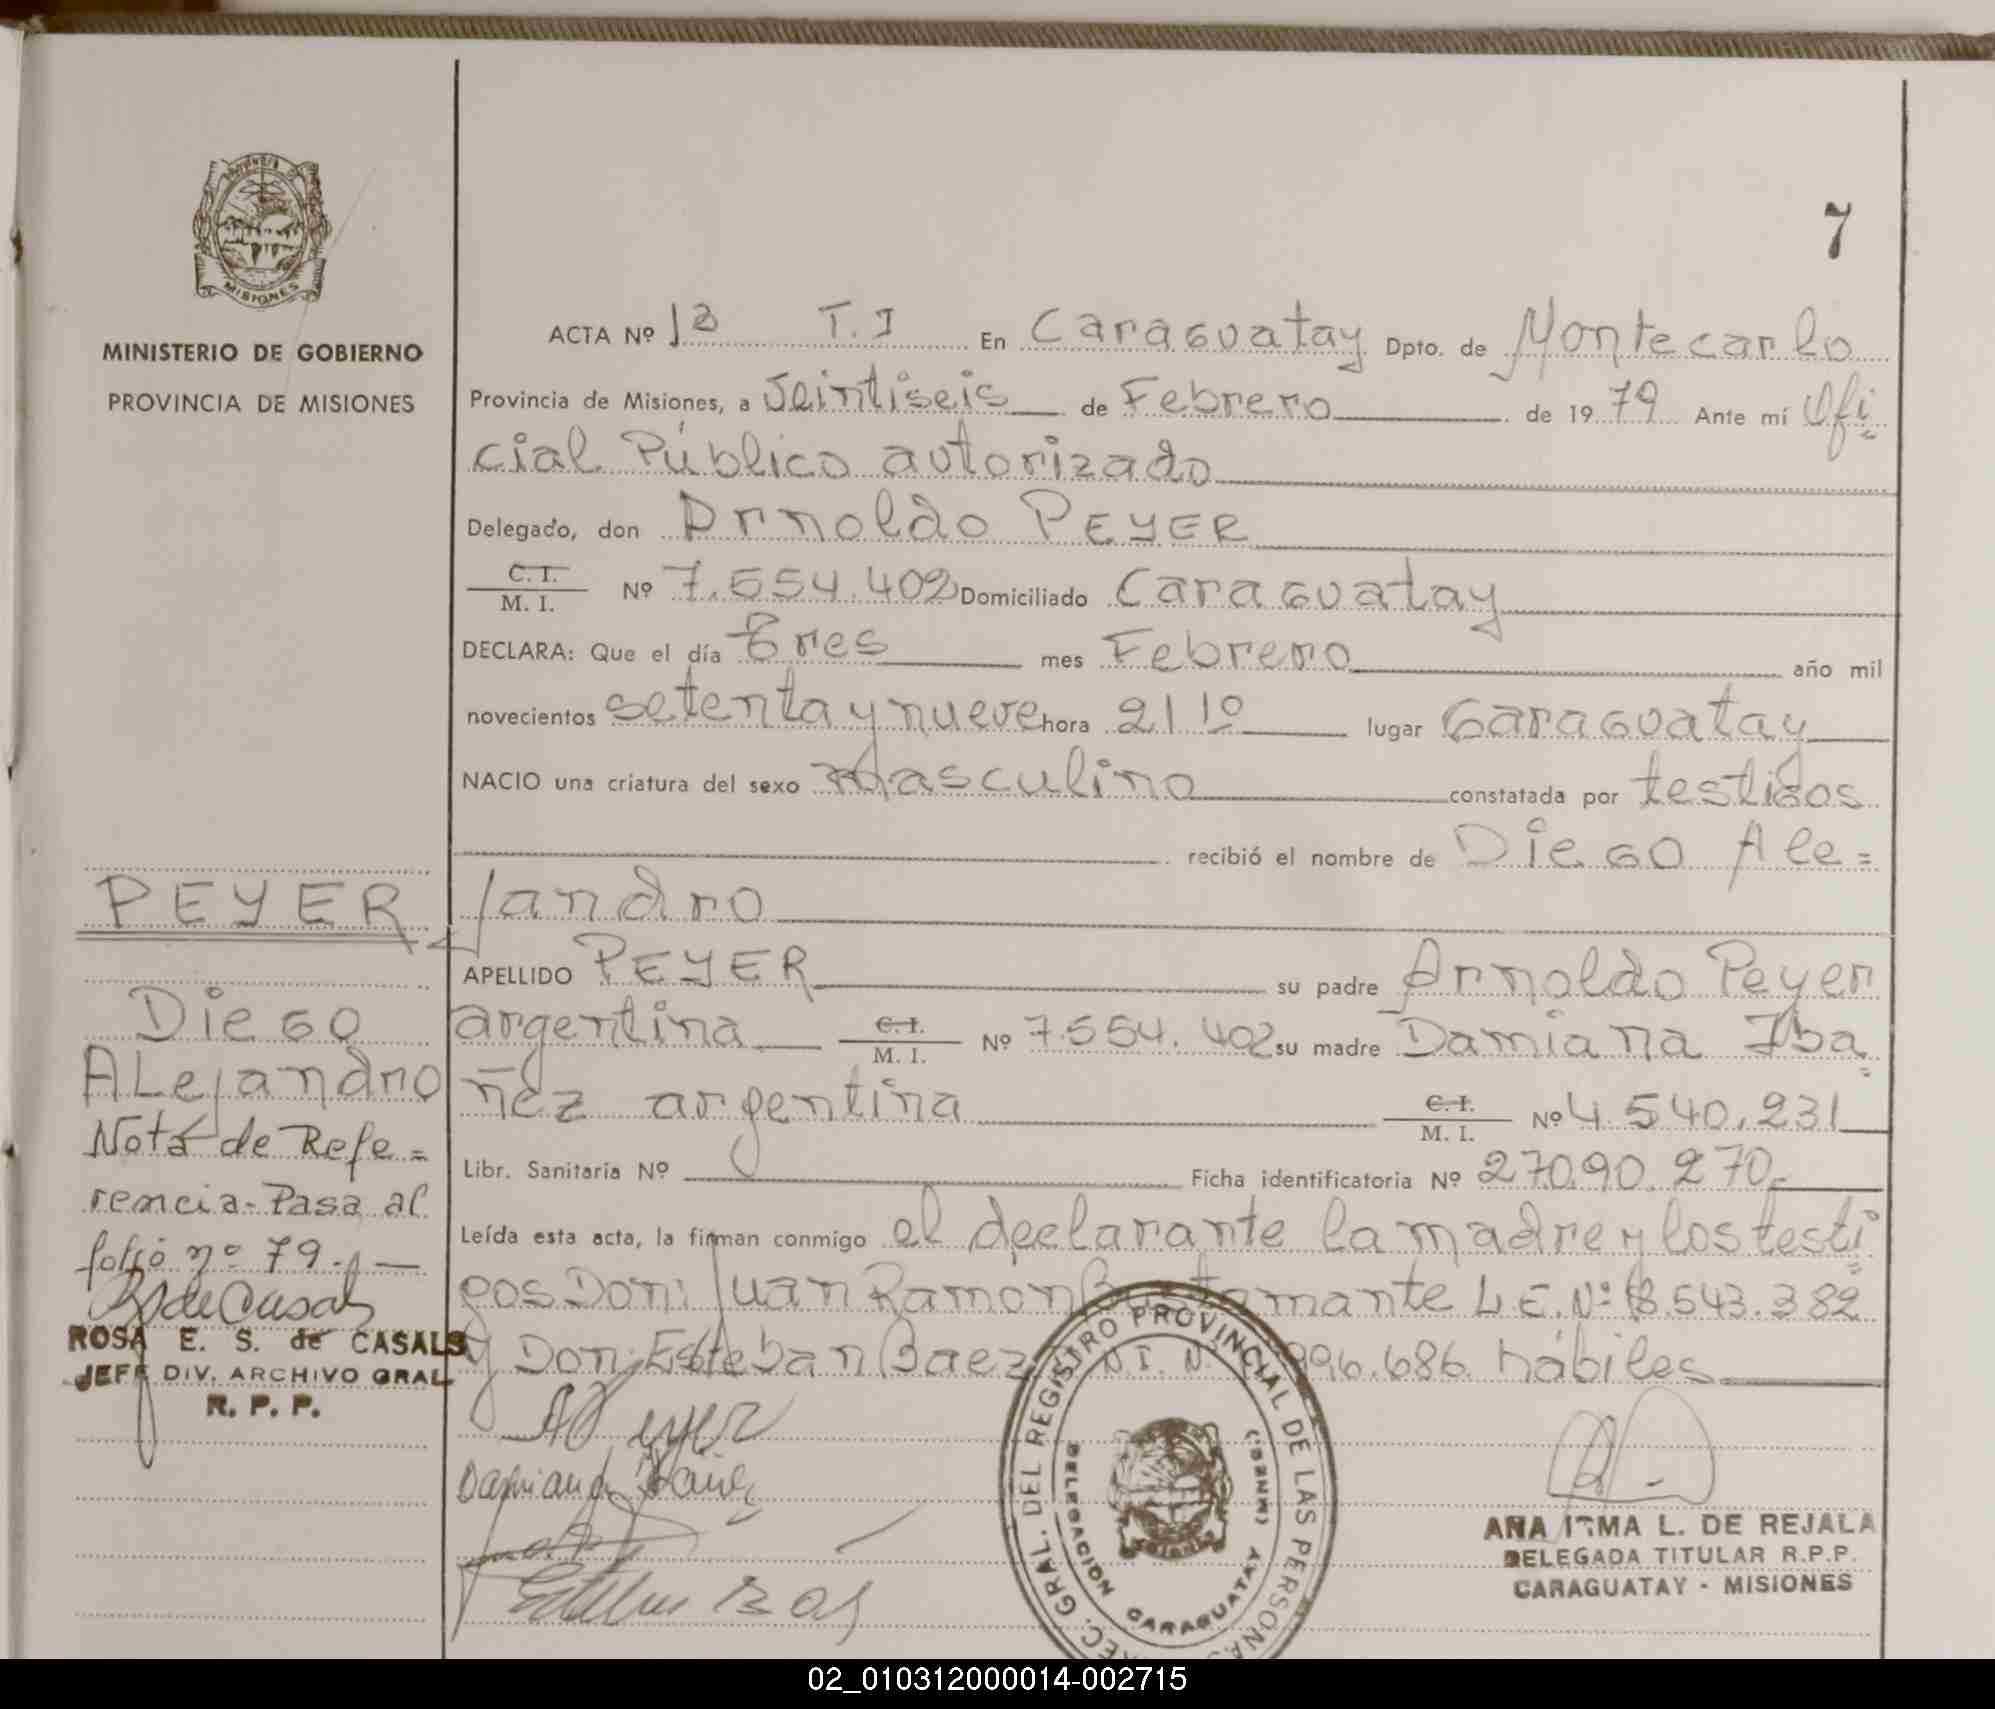 7
MISIONES
MINISTERIO DE GOBIERNO
PROVINCIA DE MISIONES
ACTA Nº 13 T.I En Caraguatay Dpto. de Montecarlo
Provincia de Misiones, a Veintiseis de Febrero de 1979 Ante mí Ofi=
cial Público autorizado
Delegado, don Arnoldo PEYER
C.I. / M. I. Nº 7.554.402 Domiciliado Caraguatay
DECLARA: Que el día Tres mes Febrero año mil
novecientos setenta y nueve hora 21 10 lugar Caraguatay
NACIO una criatura del sexo Masculino constatada por testigos
recibió el nombre de Diego Ale=
jandro
APELLIDO PEYER su padre Arnoldo Peyer
argentina C.I. / M. I. Nº 7.554.402 su madre Damiana Iba=
ñez argentina C.I. / M. I. Nº 4.540.231
Libr. Sanitaria Nº Ficha identificatoria Nº 27.090.270.-
Leída esta acta, la firman conmigo el declarante la madre y los testi=
gos Don: Juan Ramon Bustamante L.E. Nº 8.543.382
y Don: Esteban Baez D.N.I. Nº 996.686. hábiles
PEYER
Diego
ALejandro
Nota de Refe=
rencia- Pasa al
folio nº 79.-
RSdeCasals
ROSA E. S. de CASALS
JEFE DIV. ARCHIVO GRAL
R. P. P.
APeyer
Damiana Ibañez
Esteban Baez
DIREC. GRAL. DEL REGISTRO PROVINCIAL DE LAS PERSONAS
DELEGACION CARAGUATAY (MNES.)
MISIONES
ANA IRMA L. DE REJALA
DELEGADA TITULAR R.P.P.
CARAGUATAY - MISIONES
02_010312000014-002715